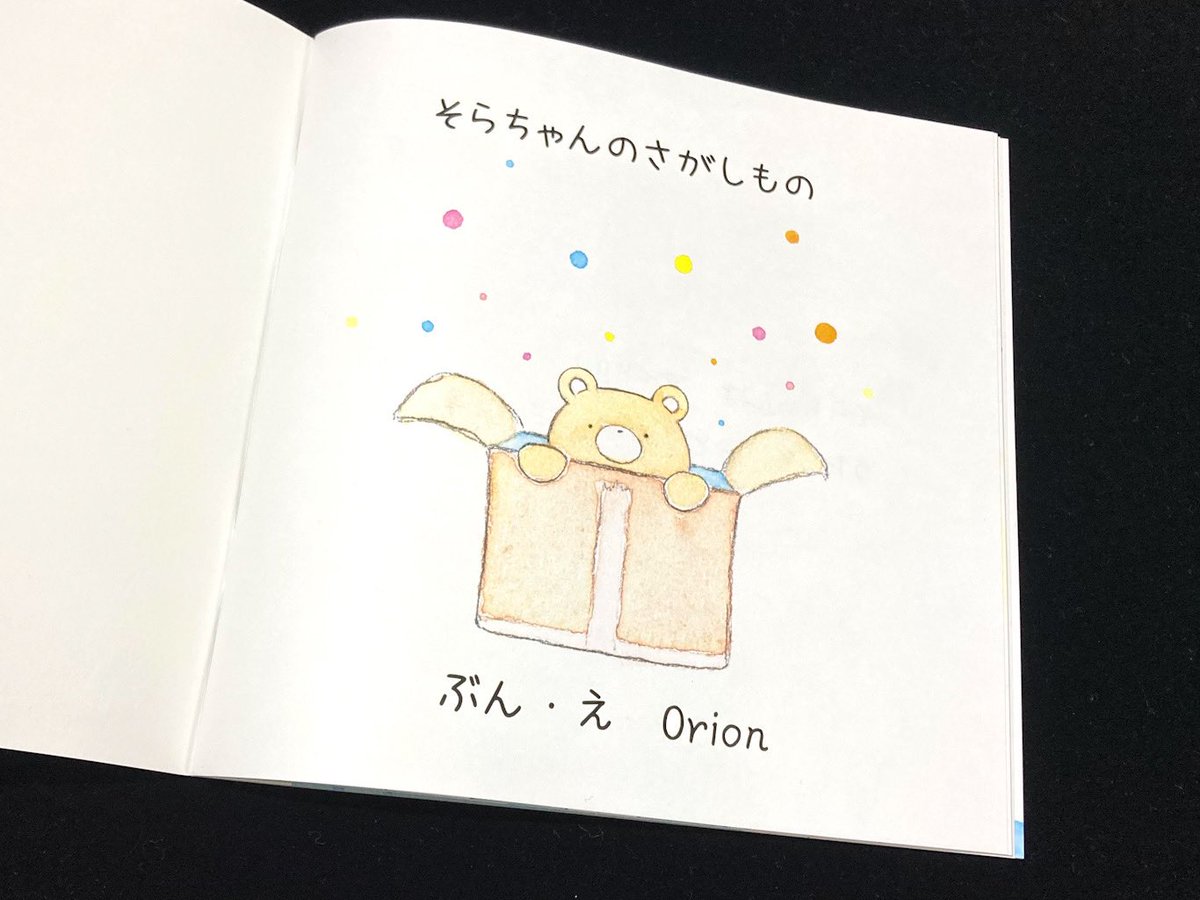 そらちゃんのさがしもの
ぶん・え　Orion